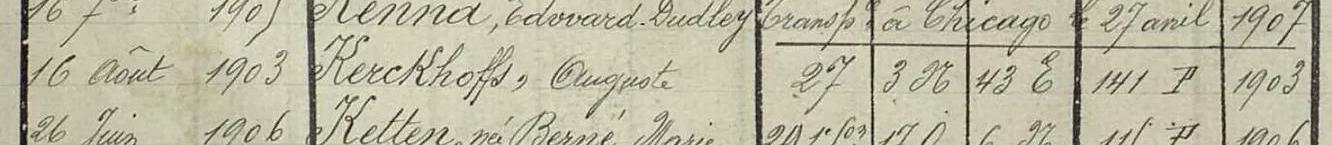 16 7bre 1905 Kenna, Edouard-Dudley Transpé à Chicago le 27 avril 1907
16 Août 1903 Kerckhoffs, Auguste 27 3 N 43 E 141 P 1903
26 Juin 1906 Ketten, née Berné, Marie 29 17 6 N P 1906